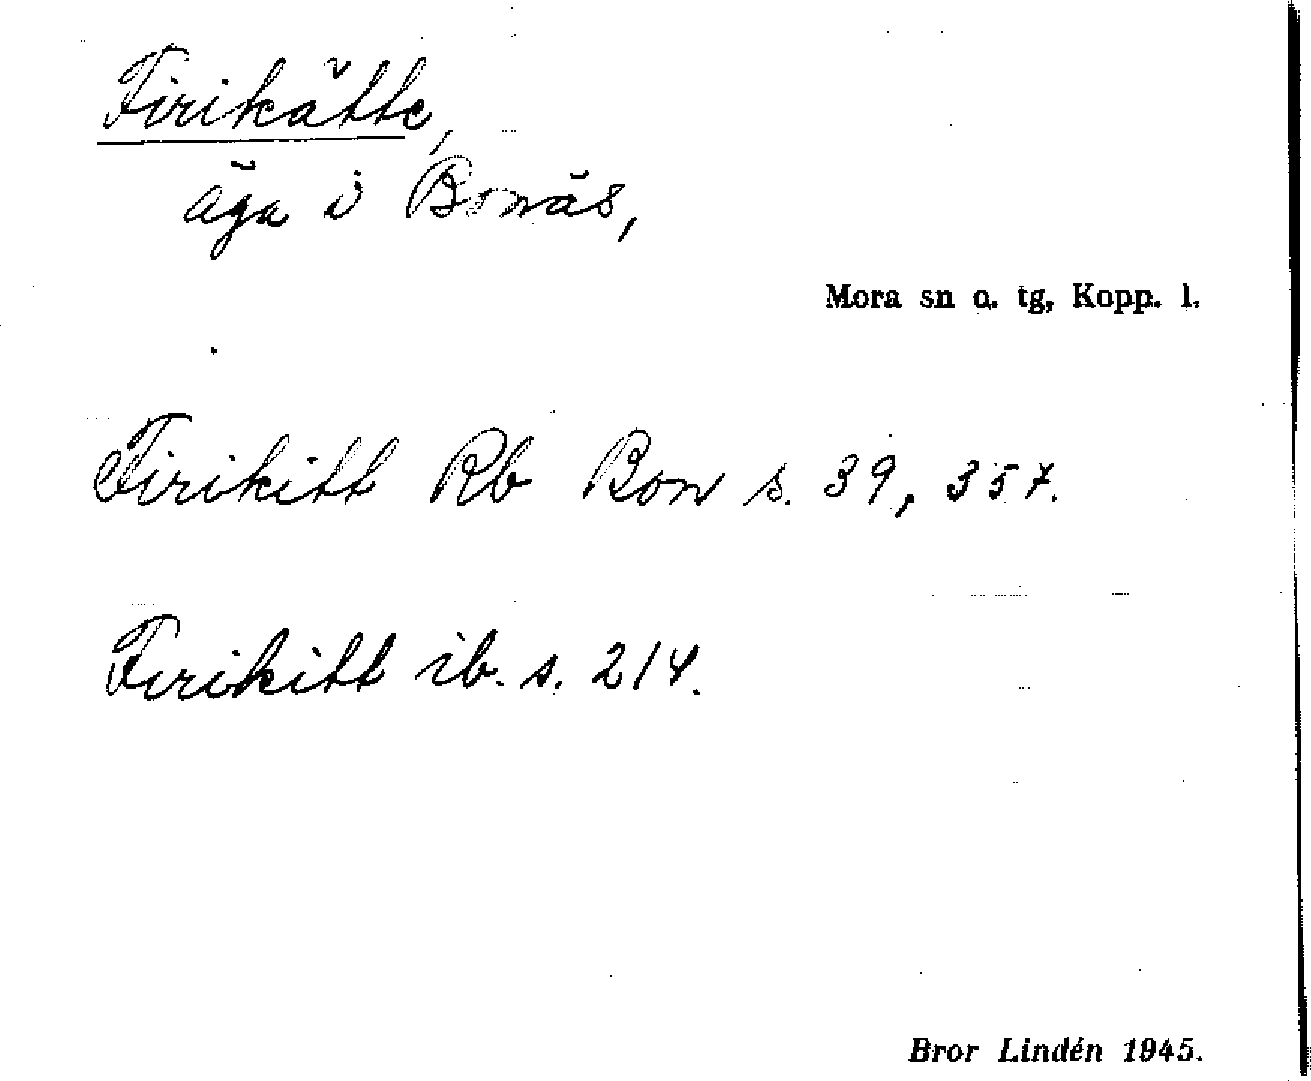 Firikätte,
äga i Bonäs,
Mora sn o. tg, Kopp. l.
Firikitt Rb Bon s. 39, 357.
Firikitt ib. s. 214.
Bror Lindén 1945.